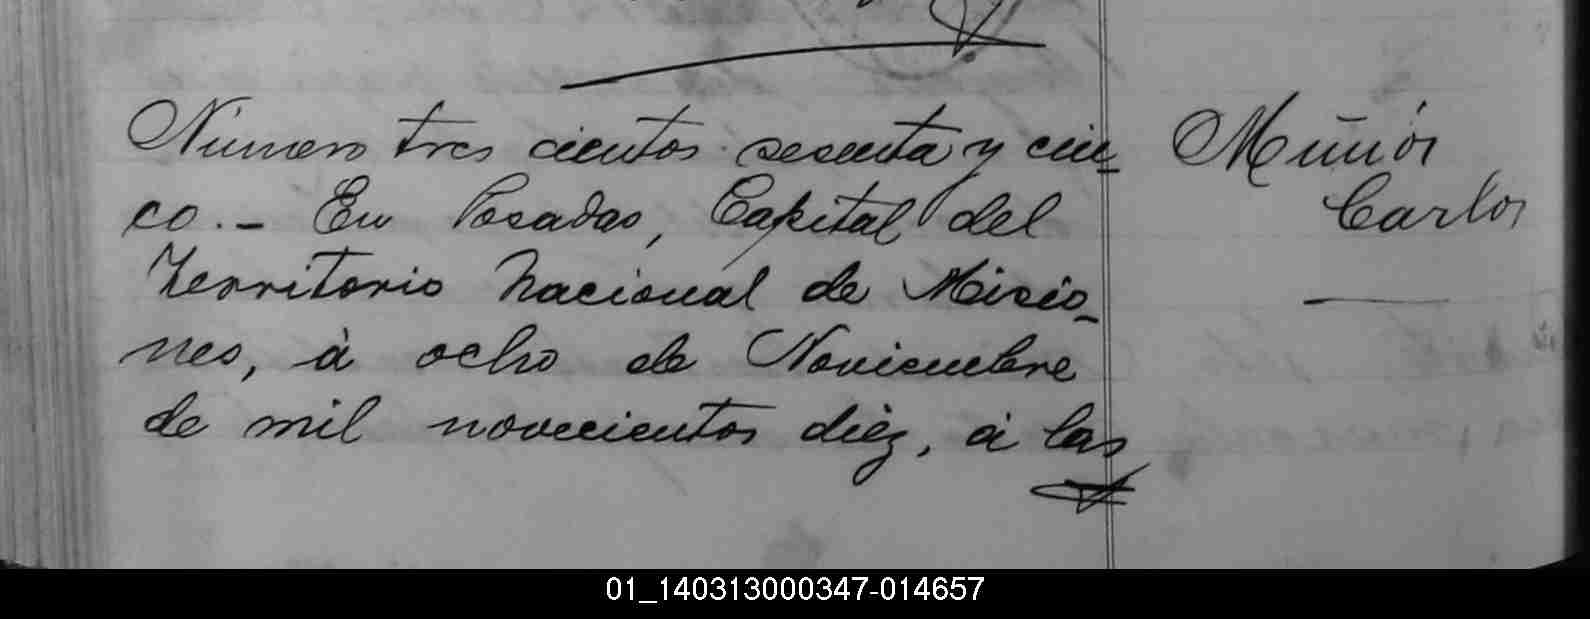 Número tres cientos sesenta y cin-
co.- En Posadas, Capital del
Territorio Nacional de Misio-
nes, à ocho de Noviembre
de mil novecientos diéz, á las
Muñós
Carlos
01_140313000347-014657